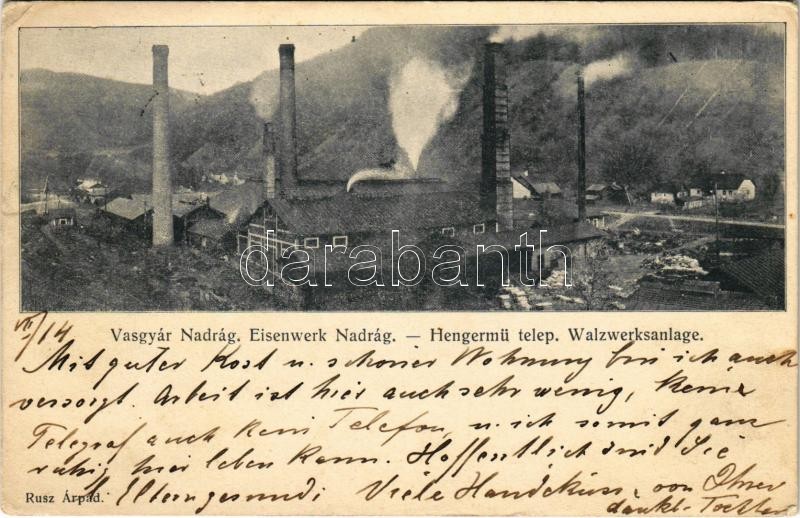 darabanth
Vasgyár Nadrág. Eisenwerk Nadrág. — Hengermü telep. Walzwerksanlage.
VII/14
Mit guter Kost u. schöner Wohnung bin ich auch
versorgt. Arbeit ist hier auch sehr wenig, Keine
Telegraf auch kein Telefon, u. ich somit ganz
ruhig hier leben kann. Hoffentlich sind Sie
l. Eltern gesund! Viele Handküsse von Ihrer
dankb. Tochter
Rusz Árpád.